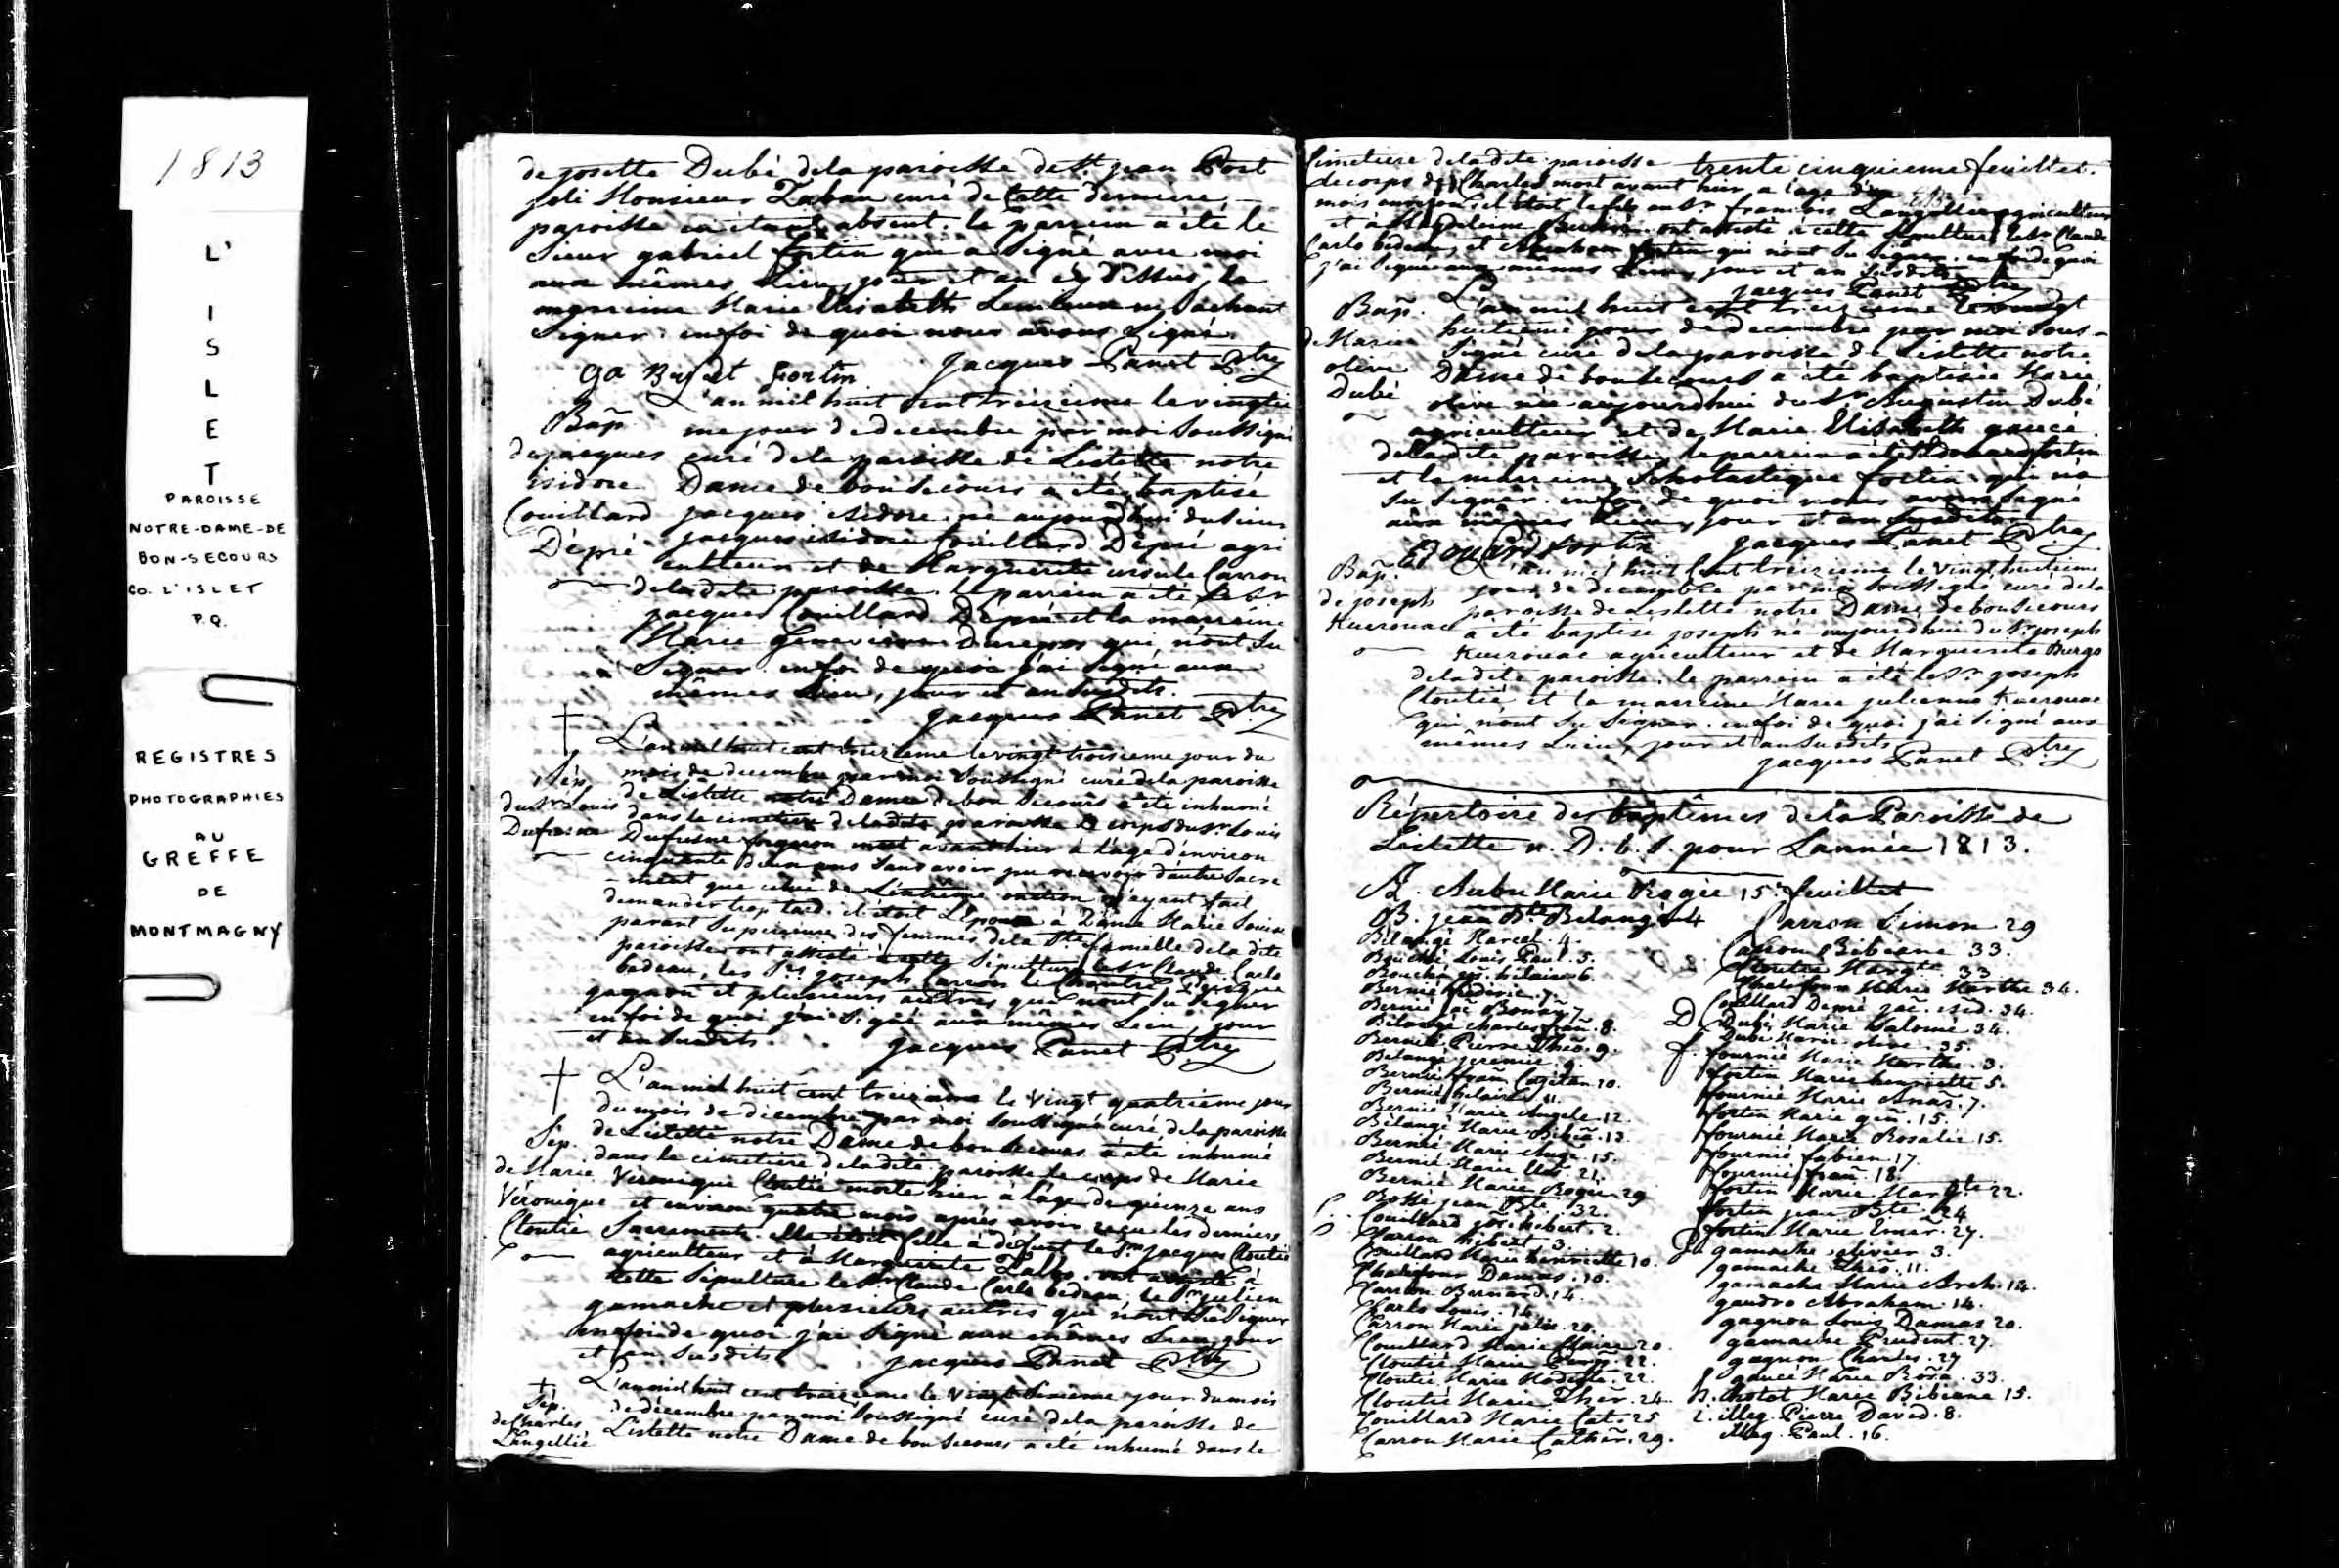 1813
L'
I
S
L
E
T
PAROISSE
NOTRE-DAME-DE
BON-SECOURS
CO. L'ISLET
P.Q.
REGISTRES
PHOTOGRAPHIES
AU
GREFFE
DE
MONTMAGNY
de josette Dubé dela paroisse de St. jean Port
joli Monsieur curé de Cette derniere
paroisse en étant absent. le parrein a été le
Sieur gabriel fortin qui a Signé avec moi
aux mêmes Lieu, jour et an cy Dessus, la
marreine Marie Elisabeth Lemieux ny Sachant
Signer. enfoi de quoi nous avons Signé.
jacques Panet Ptre
fortin
L'an mil huit cent treizieme le vingtie
Bap. me jour de decembre par moi Soussigné
de jacques curé dela paroisse de Listette notre
isidore Dame de bon Secours a été baptisé
Couillard jacques isidore né aujourdhui du Sieur
Dépré jacques isidore Couillard Dépré agri
culteur et de Marguerite ursule Carron
deladite paroisse. le parrein a été le Sr
jacques Couillard Dépré et la marreine
Marie Genevieve qui n'ont Su
Signer. enfoi de quoi j'ai Signé aux
mêmes Lieu, jour et an Susdits.
jacques Panet Ptre
L'an mil huit cent treizieme le vingt troisieme jour du
Sép. mois de decembre par moi Soussigné curé dela paroisse
du Sr. Louis de Listette notre Dame de bon Secours a été inhumé
Dufresne dans le cimetiere deladite paroisse le corps du Sr Louis
Dufresne forgeron mort avant hier à l'age d'environ
cinquante deux ans Sans avoir pu recevoir d'autre Sacre
-ment que celui de L'extrême onction ayant fait
demander trop tard. il étoit L'époux à Dame Marie Louise
parant Superieure des femmes dela Ste famille deladite
paroisse. ont assisté à cette Sépulture le Sr Claude Carlo
bedeau, les Srs joseph Carron le Chantre
gagnon et plusieurs autres qui n'ont Su Signer
enfoi de quoi j'ai Signé aux mêmes Lieu, jour
et an Susdits. jacques Panet Ptre
L'an mil huit cent treizieme le vingt quatrieme jour
du mois de décembre par moi Soussigné curé dela paroisse
Sép. de Listette notre Dame de bon Secours a été inhumé
dans le cimetiere deladite paroisse le corps de Marie
de Marie Véronique Cloutié morte hier à l'age de quinze ans
Véronique et environ quatre mois après avoir reçu les derniers
Cloutié Sacrements. elle étoit fille à défunt le Sr. jacques Cloutié
agriculteur et à Marguerite ont assisté à
cette Sépulture le Sr Claude Carlo bedeau, le Sr julien
gamache et plusieurs autres qui n'ont Su Signer
enfoi de quoi j'ai Signé aux mêmes Lieu, jour
et an Susdits. jacques Panet Ptre
L'an mil huit cent treizieme le vingt Sixieme jour du mois
Sép. de décembre par moi Soussigné curé dela paroisse de
de Charles
Langellié Listette notre Dame de bon Secours a été inhumé dans le
Cimetiere deladite paroisse trente cinquieme feuillet.
le corps de Charles mort avant hier a l'age d'un
mois environ. il étoit le fils au Sr. françois Langellier agriculteur
et à Magdeleine ont assisté a cette Sépulture le Sr Claude
Carlo bedeau, et Abraham fortin qui n'ont Su Signer. enfoi de quoi
j'ai Signé aux mêmes Lieu, jour et an Susdits.
jacques Panet Ptre
Bap. L'an mil huit cent treizieme le vingt
huitieme jour de decembre par moi Sous-
de Marie Signé curé dela paroisse de Listette notre
olive Dame de bon Secours a été baptisée Marie
Dubé olive née aujourdhui du Sr Augustin Dubé
agriculteur et de Marie Elisabeth gaucé
deladite paroisse, le parrein a été Edouard fortin
et la marreine Scholastique fortin qui n'a
Su Signer. enfoi de quoi nous avons Signé
aux mêmes Lieu, jour et an Susdits.
Edouard fortin jacques Panet Ptre
Bap. L'an mil huit Cent treizieme le vingt huitieme
de joseph jour de decembre par moi Soussigné curé dela
Kuerouac paroisse de Listette notre Dame de bon Secours
a été baptisé joseph né aujourdhui du Sr. joseph
Kuerouac agriculteur et de Marguerite
deladite paroisse. le parrein a été le Sr joseph
Cloutié et la marreine Marie julienne Kuerouac
qui n'ont Su Signer. enfoi de quoi j'ai Signé aux
mêmes Lieu, jour et an Susdits
jacques Panet Ptre
Répertoire des baptêmes dela Paroisse de
Listette n. D. b. S. pour Lannée 1813.
A. Aubu Marie Rogée 15e. feuillet
B. jean Bte. Bélangé 4
Bélangé Marcel. 4.
Bouché Louis Paul. 5.
Bouché jos. hilaire. 6.
Bernié fréderic. 7.
Bernié jac. Bonav. 7.
Bélangé Charles fran. 8.
Bernié Pierre Théo. 9.
Bélangé jeremie. 9.
Bernié fran. Cagétan. 10.
Bernié hilaire. 11.
Bernié Marie Angele. 12.
Bélangé Marie Bibia. 13.
Bernié Marie Ange. 15.
Bernié Marie 21.
Bernié Marie Rogée. 29
Bossé jean Bte. 32.
C. Couillard jos. hubert. 2.
Carron hubert 3.
Couillard Marie henriette 10.
Chalifour Damas. 10.
Carron Bernard. 14.
Carlo Louis. 14.
Carron Marie julie. 20.
Couillard Marie Claire 20.
Cloutié Marie 22.
Cloutié Marie Modeste. 22.
Cloutié Marie Ther. 24.
Couillard Marie Cat. 25
Carron Marie Cather. 29.
Carron Simon 29
Carron Bibiane 33.
Cloutié Margte. 33
Chalifour Marie Marthe 34.
Couillard Dépré jac. isid. 34.
D Dubé, Marie Salomé 34.
Dubé Marie olive. 35.
f. fournié Marie Marthe. 3.
fortin Marie henriette 5.
fournié Marie Anas. 7.
fortin Marie gen. 15.
fournié Marie Rosalie 15.
fournié fabien. 17.
fournié fran. 18.
fortin Marie Margte. 22.
fortin jean Bte. 24
fortin Marie Emer. 27.
G. gamache olivier 3.
gamache Théo. 11.
gamache Marie Arch. 14.
gaudro Abraham. 14.
gagnon Louis Damas 20.
gamache Prudent. 27.
gagnon Charles. 27
gaucé Marie Rosa. 33.
Marie Bibiane 15.
I. illeg. Pierre David. 8.
illeg. Paul. 16.